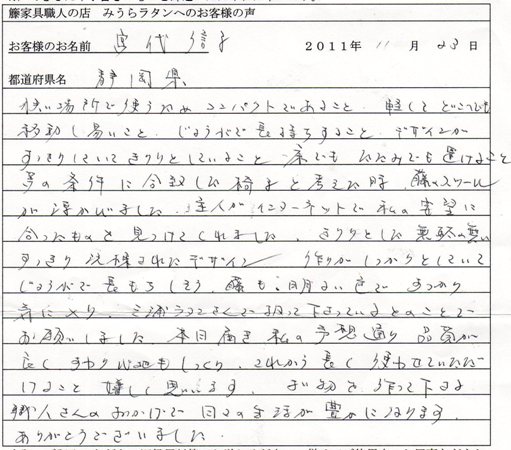 籐家具職人の店 みうらラタンへのお客様の声
お客様のお名前 宮代 信子 2011年 11月 23日
都道府県名 静岡県
狭い場所で使うため コンパクトであること、軽くて どこでも
移動し易いこと、じょうぶで長持ちすること、デザインが
すっきりしていてきりりとしていること 床でも たたみでも置けること
等の条件に合致した椅子と考えた時、籐のスツール
が浮かびました。主人がインターネットで私の要望に
合ったものを見つけてくれました。きりりとした無駄の無い
すっきり洗練されたデザイン 作りがしっかりとしていて
じょうぶで長もちしそう、籐も明るい色で すっかり
気に入り、三浦ラタンさんで作って下さっているとのことで
お願いしました 本日届き 私の予想通り 品質が
良く すわり心地もしっくり、これから長く使わせていただ
けること 嬉しく思います。よい物を作って下さる
職人さんのおかげで日々の生活が豊かになります
ありがとうございました。